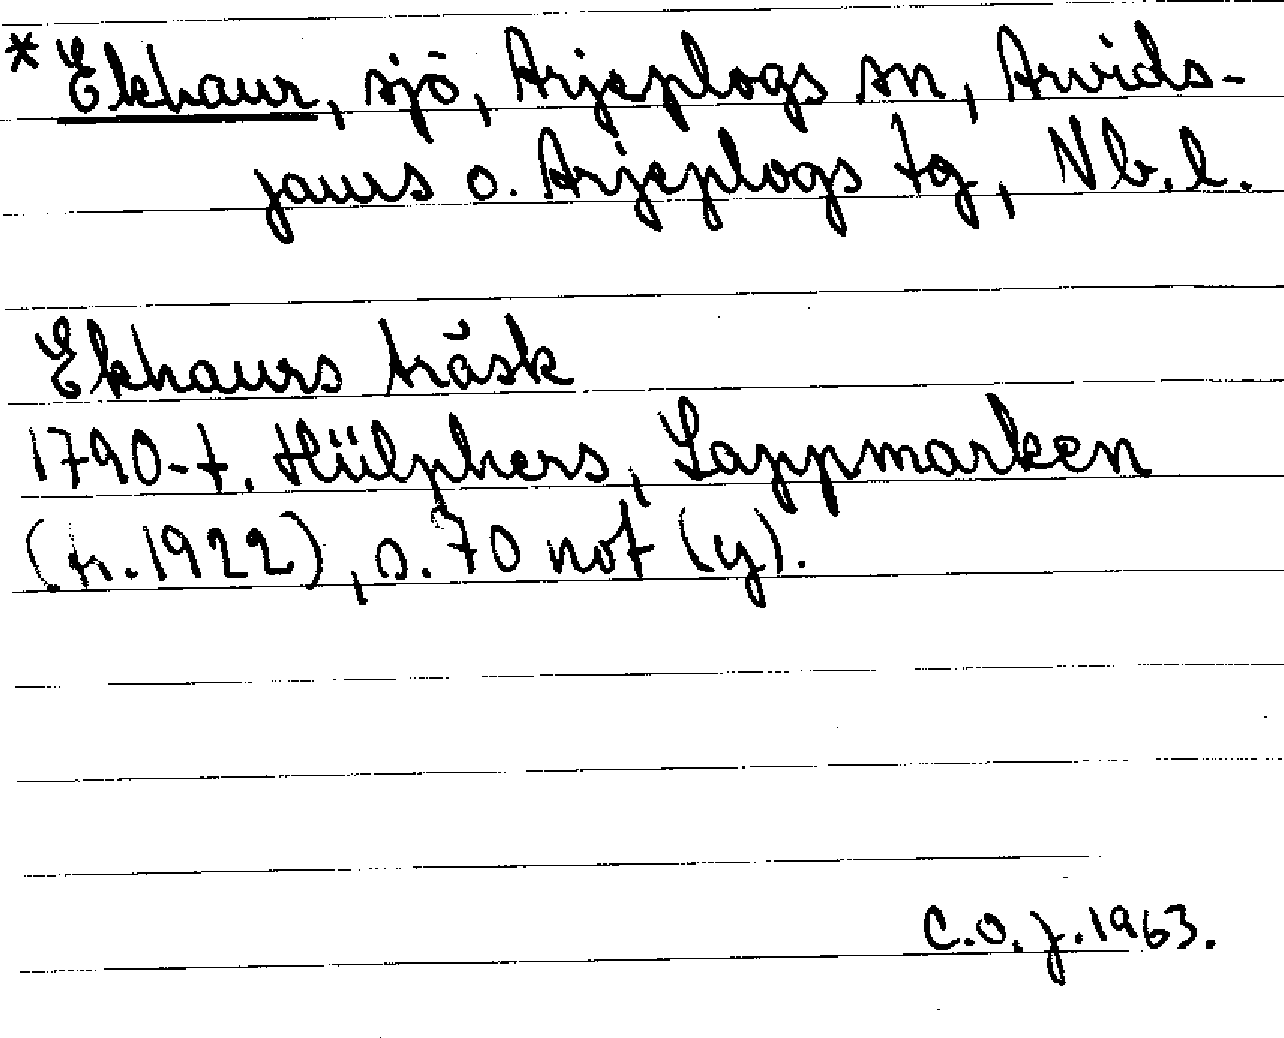 * Ekhaur, sjö, Arjeplogs sn, Arvids-
jaurs o. Arjeplogs tg, Nb.l.
Ekhaurs träsk
1790-t. Hülphers, Lappmarken
(tr. 1922), s. 70 not (y).
C.O.J. 1963.